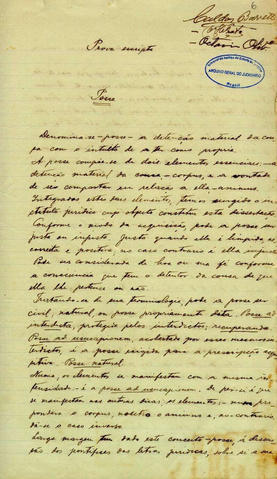 6
Caldas Barreto
Octavio
ARQUIVO GERAL DO JUDICIÁRIO
Prova escripta
Posse
Denomina-se - posse - a detenção material da cou
sa com o intuito de a ter como propria.
A posse compõe-se de dois elementos essenciaes: - a
detenção material da cousa - corpus, e a vontade
de se comportar em relação a ella - animus.
Integrados estes dous elementos, temos surgido o ins
tituto juridico cujo objecto constitue esta dissertação
Conforme o modo da acquisição pode a posse ser
justa ou injusta. Justa quando ella é
e no caso contrario é ella injusta
Pode ser considerada de boa ou má fé conforme
a consciencia que tem o detentor da cousa de que
ella lhe pertence ou não.
de sua terminologia, pode a posse ser
civil, natural, ou posse propriamente dita. Posse ad
interdicta, protegida pelos interdictos;
Posse ad usucapionem, por esses mesmos in
terdictos, é a posse exigida para a prescripção acqui
sitiva. Posse natural
Numa, os elementos se manifestam com a mesma in
tensidade - é a posse ad usucapionem, de per si é que
se manifestam nas outras duas; os elementos, numa pre
pondera o corpus, noutra o animus e, no contrario
dá-se o caso inverso.
Larga margem tem dado este conceito - posse, á discus
são dos pontifices das letras juridicas, sobre si a